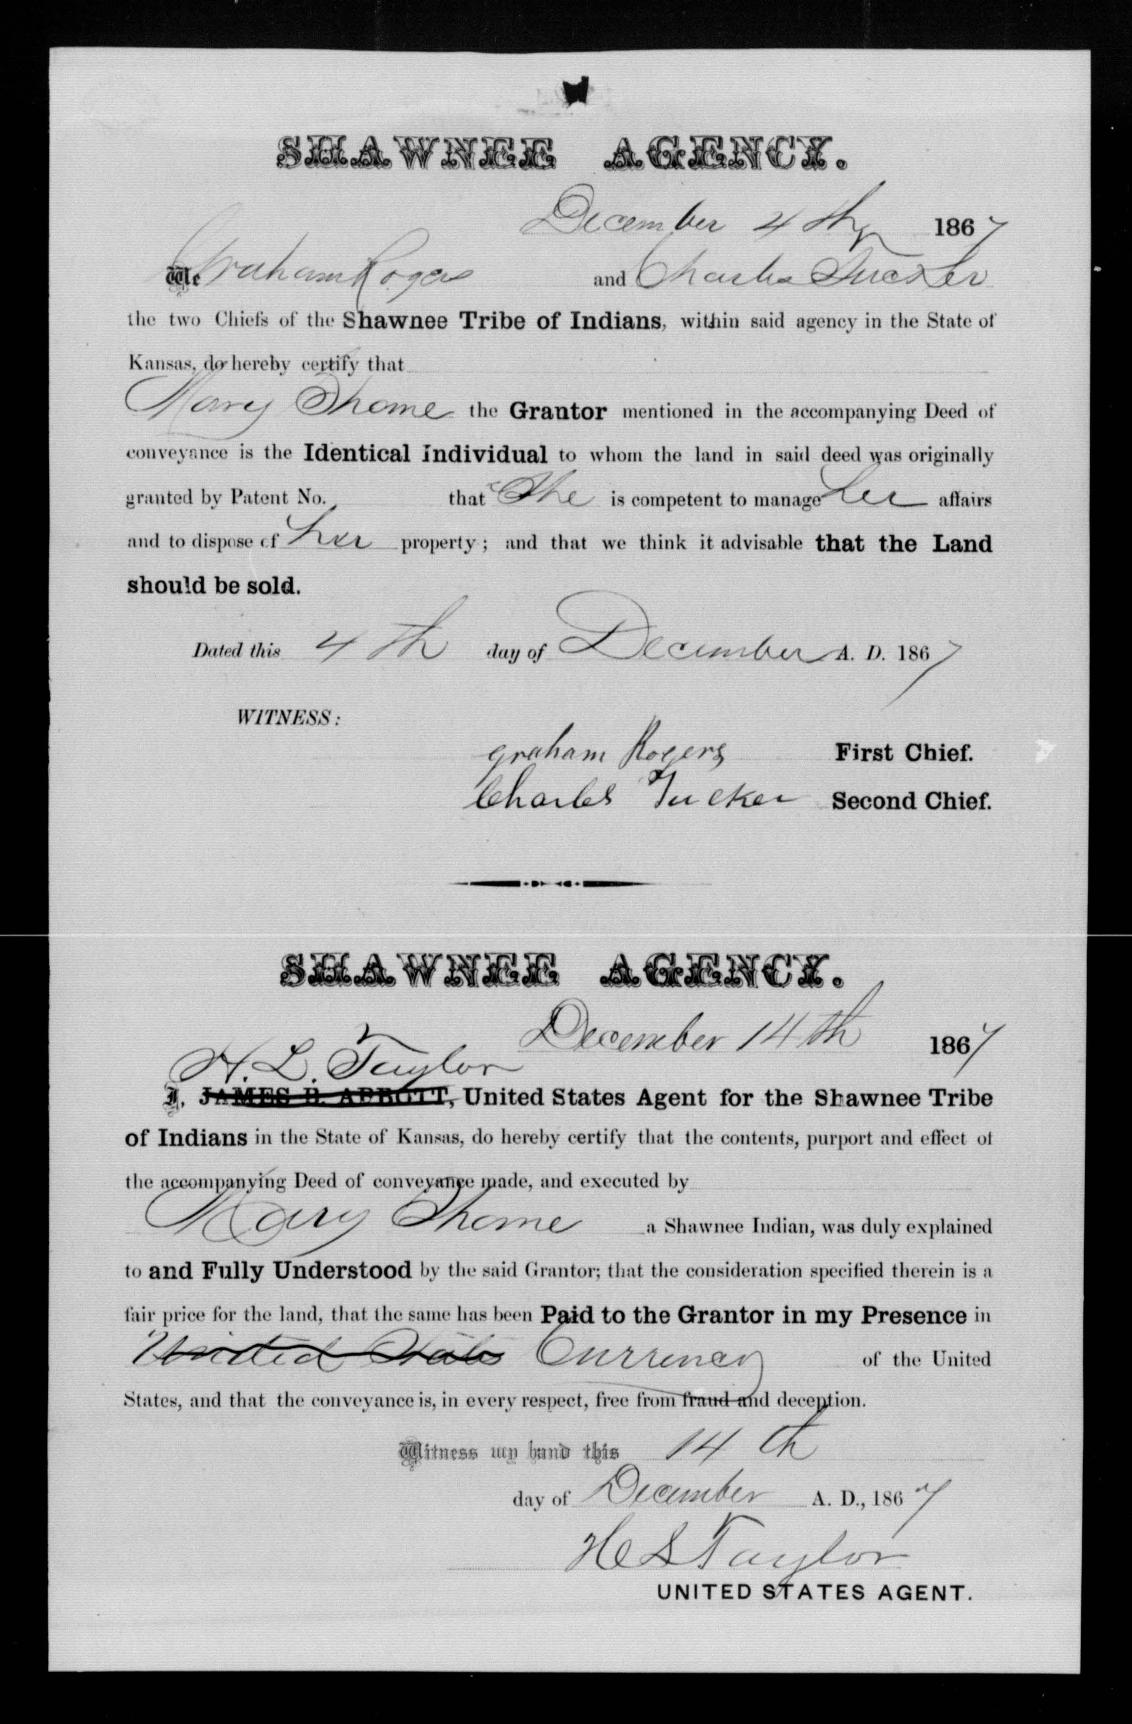 SHAWNEE AGENCY.
December 4th 1867
We Graham Rogers and Charles Tucker
the two Chiefs of the Shawnee Tribe of Indians, within said agency in the State of
Kansas, do hereby certify that
Mary Thome the Grantor mentioned in the accompanying Deed of
conveyance is the Identical Individual to whom the land in said deed was originally
granted by Patent No. that She is competent to manage her affairs
and to dispose of her property; and that we think it advisable that the Land
should be sold.
Dated this 4th day of December A. D. 1867
WITNESS:
graham Rogers First Chief.
Charles Tucker Second Chief.
SHAWNEE AGENCY.
December 14th 1867
H. L. Taylor
I, JAMES B. ABBOTT, United States Agent for the Shawnee Tribe
of Indians in the State of Kansas, do hereby certify that the contents, purport and effect of
the accompanying Deed of conveyance made, and executed by
Mary Thome a Shawnee Indian, was duly explained
to and Fully Understood by the said Grantor; that the consideration specified therein is a
fair price for the land, that the same has been Paid to the Grantor in my Presence in
United States Currency of the United
States, and that the conveyance is, in every respect, free from fraud and deception.
Witness my hand this 14th
day of December A. D., 1867
H L Taylor
UNITED STATES AGENT.